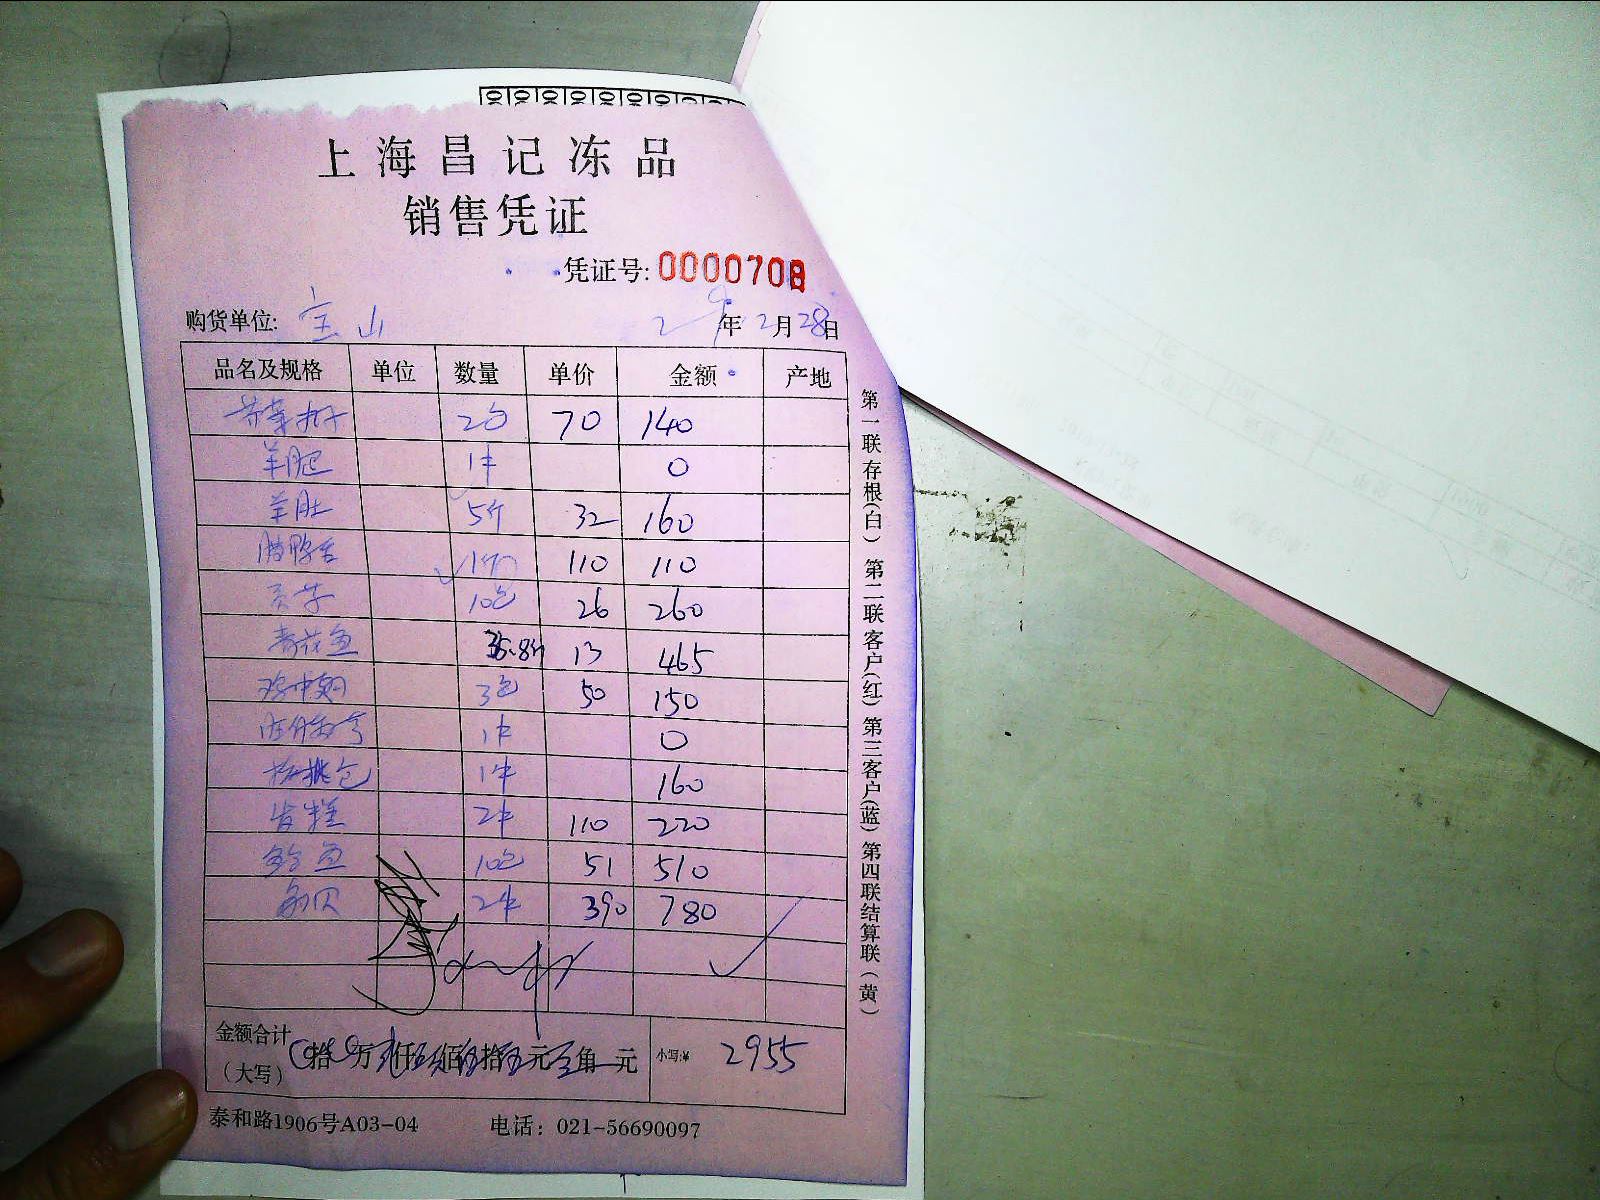 上海昌记冻品
销售凭证
凭证号: 0000708
购货单位: 宝山 年 2月28日
品名及规格 单位 数量 单价 金额 产地
2包 70 140
羊腿 1件 0
羊肚 5斤 32 160
腊鸭舌 1斤 110 110
贡菜 10包 26 260
青花鱼 35.8斤 13 465
鸡中翅 3包 50 150
1件 0
核桃包 1件 160
发糕 2件 110 220
鲍鱼 10包 51 510
扇贝 2件 390 780
金额合计
(大写) 拾 万 仟 佰 拾 元 角 元 小写:¥ 2955
泰和路1906号A03-04 电话: 021-56690097
第一联存根(白) 第二联客户(红) 第三客户(蓝) 第四联结算联(黄)